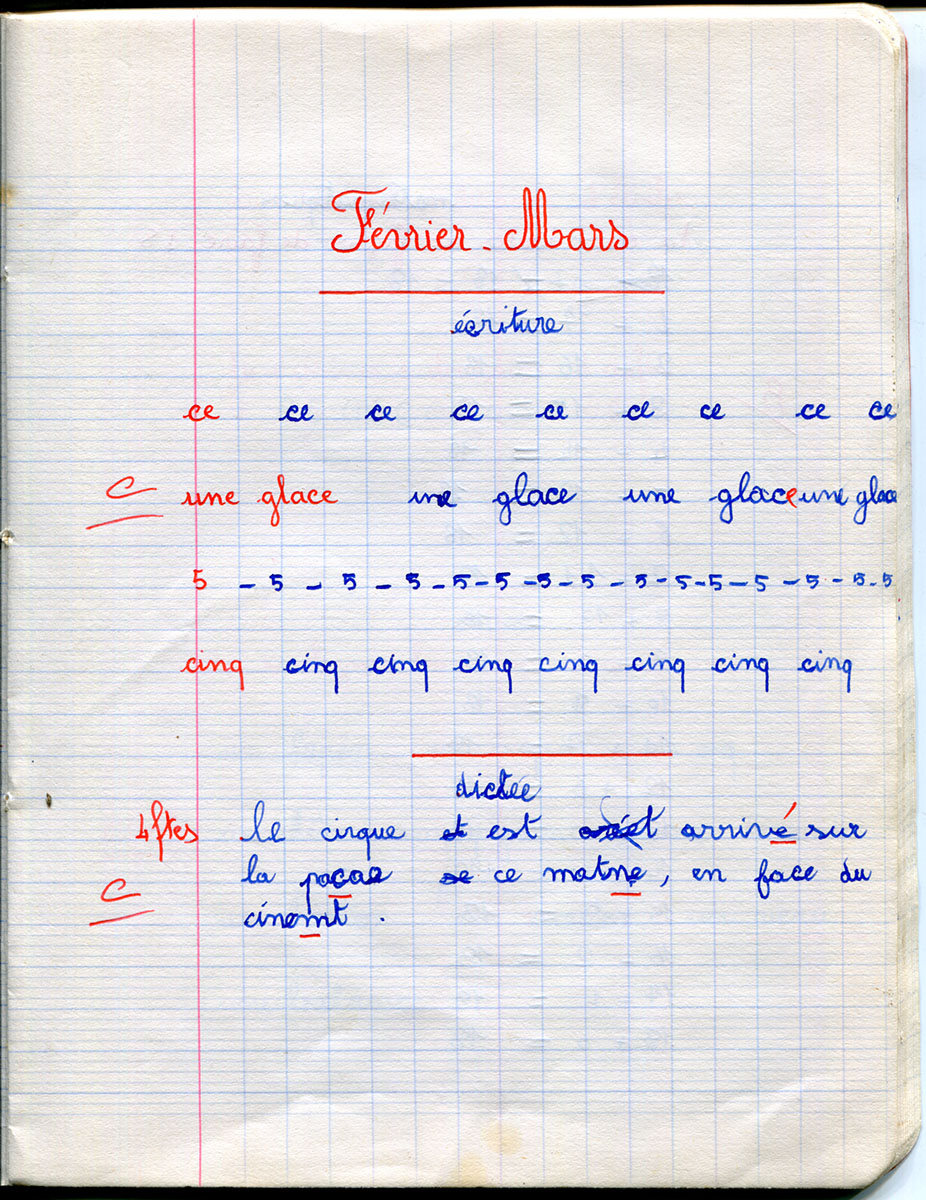 Février - Mars
écriture
ce ce ce ce ce ce ce ce ce
C une glace une glace une glace une glace
5 - 5 - 5 - 5 - 5 - 5 - 5 - 5 - 5 - 5 - 5 - 5 - 5 - 5 - 5
cinq cinq cinq cinq cinq cinq cinq cinq
dictée
4 ftes le cirque est arrivé sur
la pacae ce matne, en face du
C cinemt.